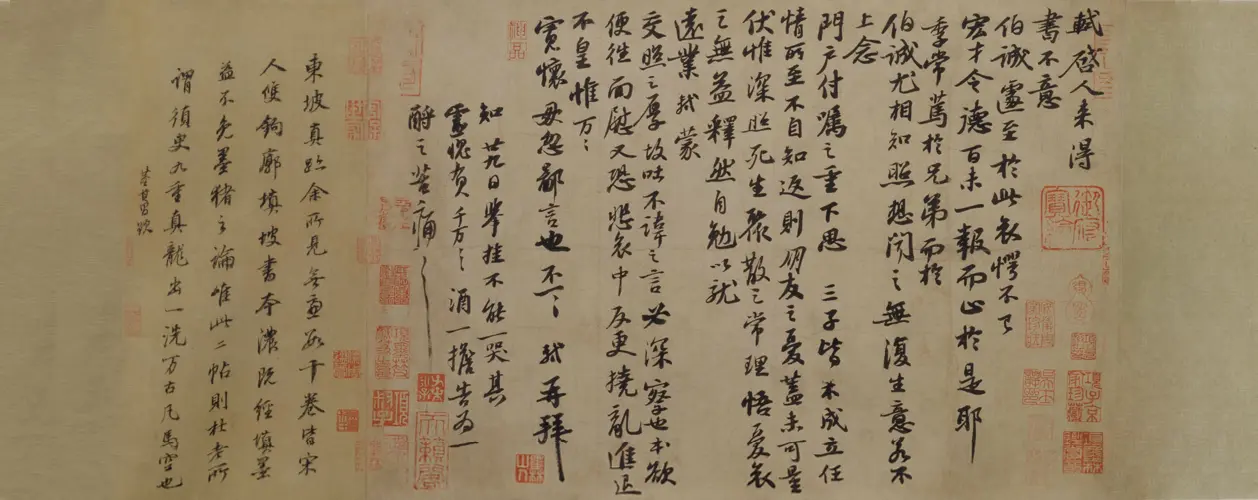 軾啓人来得
書不意
伯誠遽至於此哀愕不已
宏才令德百未一報而止於是耶
季常篤於兄弟而於
伯誠尤相知照想聞之無復生意若不
上念
門户付囑之重下思三子皆不成立任
情所至不自知返則朋友之憂蓋未可量
伏惟深照死生聚散之常理悟憂哀
之無益釋然自勉以就
遠業軾蒙
交照之厚故吐不諱之言必深察也本欲
便往面慰又恐悲哀中反更撓亂進退
不皇惟万〻
寬懷毋忽鄙言也不一〻軾再拜
知廿九日舉挂不能一哭其
靈愧負千万〻酒一擔告為一
酹之苦痛〻
東坡真跡余所見無慮數十卷皆宋
人雙鉤廓填坡書本濃既經填墨
益不免墨豬之論唯此二帖則杜老所
謂須臾九重真龍出一洗万古凡馬空也
董其昌題